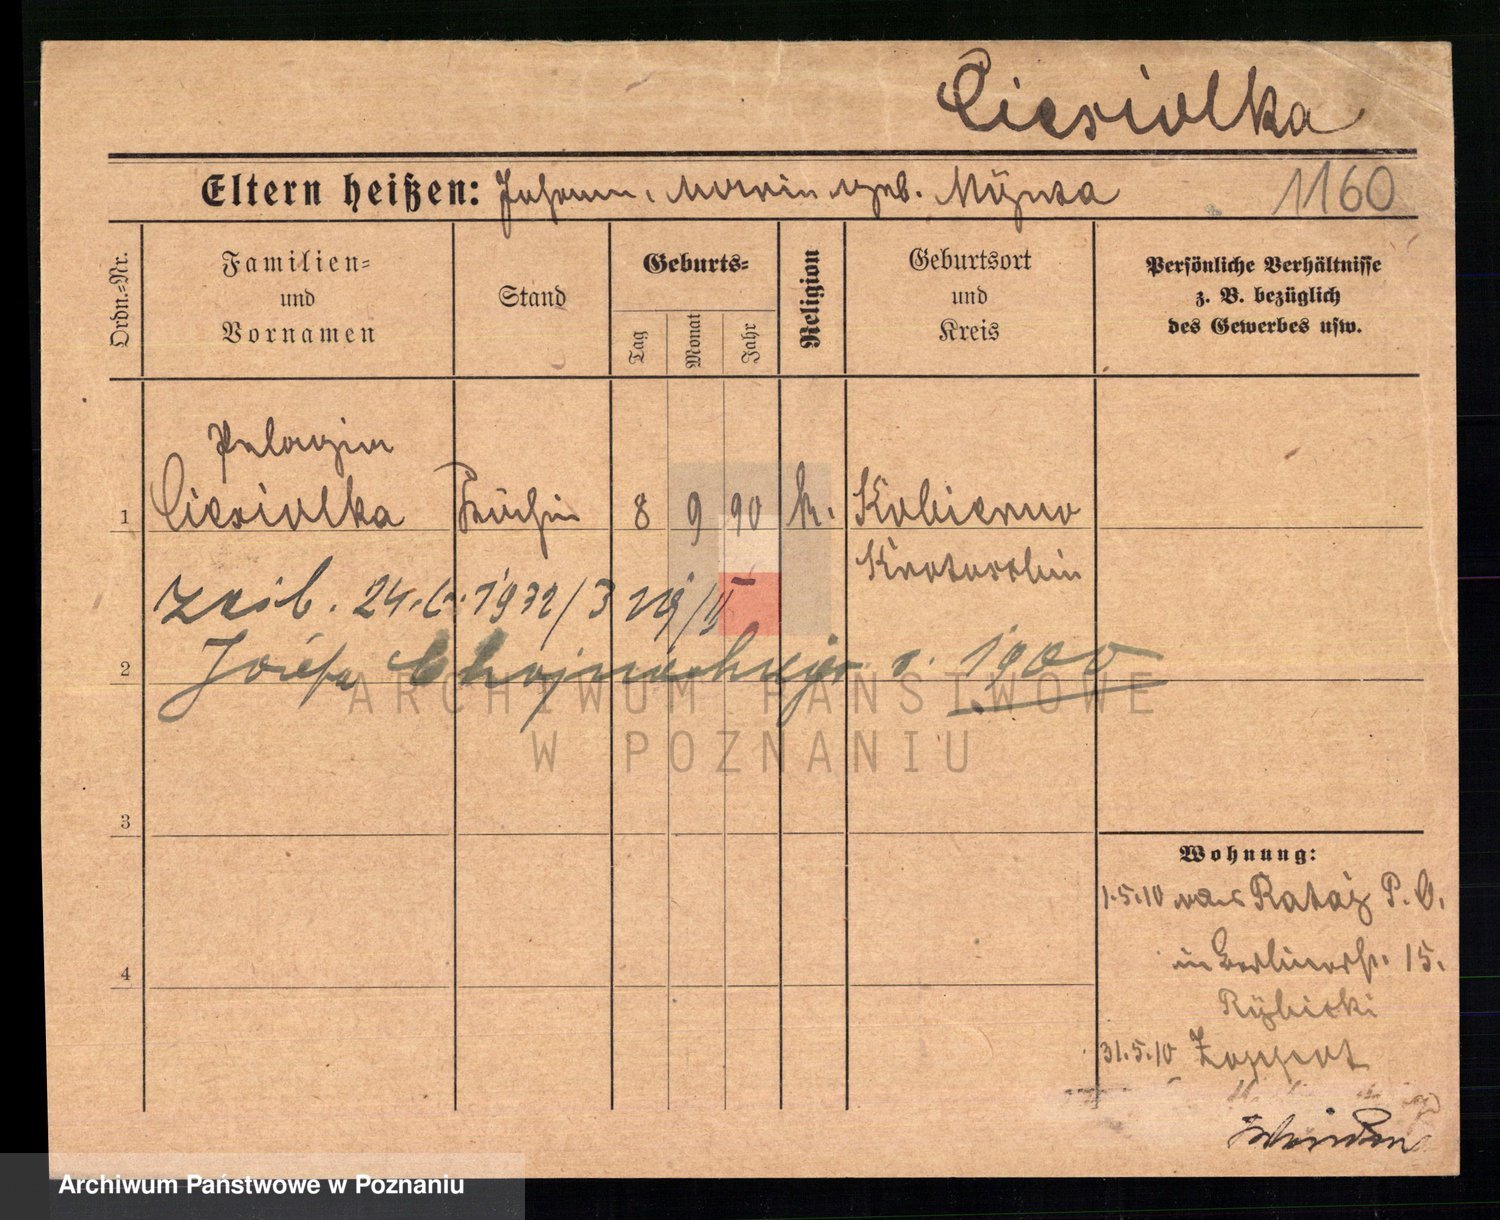 Ciesiolka
Eltern heißen: Johann, Maria geb. 
1160
Ordn.-Nr.
Familien-
und
Vornamen
Stand
Geburts-
Tag
Monat
Jahr
Religion
Geburtsort
und
Kreis
Persönliche Verhältnisse
z. B. bezüglich
des Gewerbes usw.
Pelagia
1 Ciesiolka Köchin 8 9 90 k. Kobierno
Krotoschin
24.6.1932/3
2 Józefa Chojnackiego r. 1900
3
4
Wohnung:
1.5.10 von Rataj P. O.
in Berlinerstr. 15.
Rybicki
31.5.10 Zoppot
ARCHIWUM PAŃSTWOWE
W POZNANIU
Archiwum Państwowe w Poznaniu